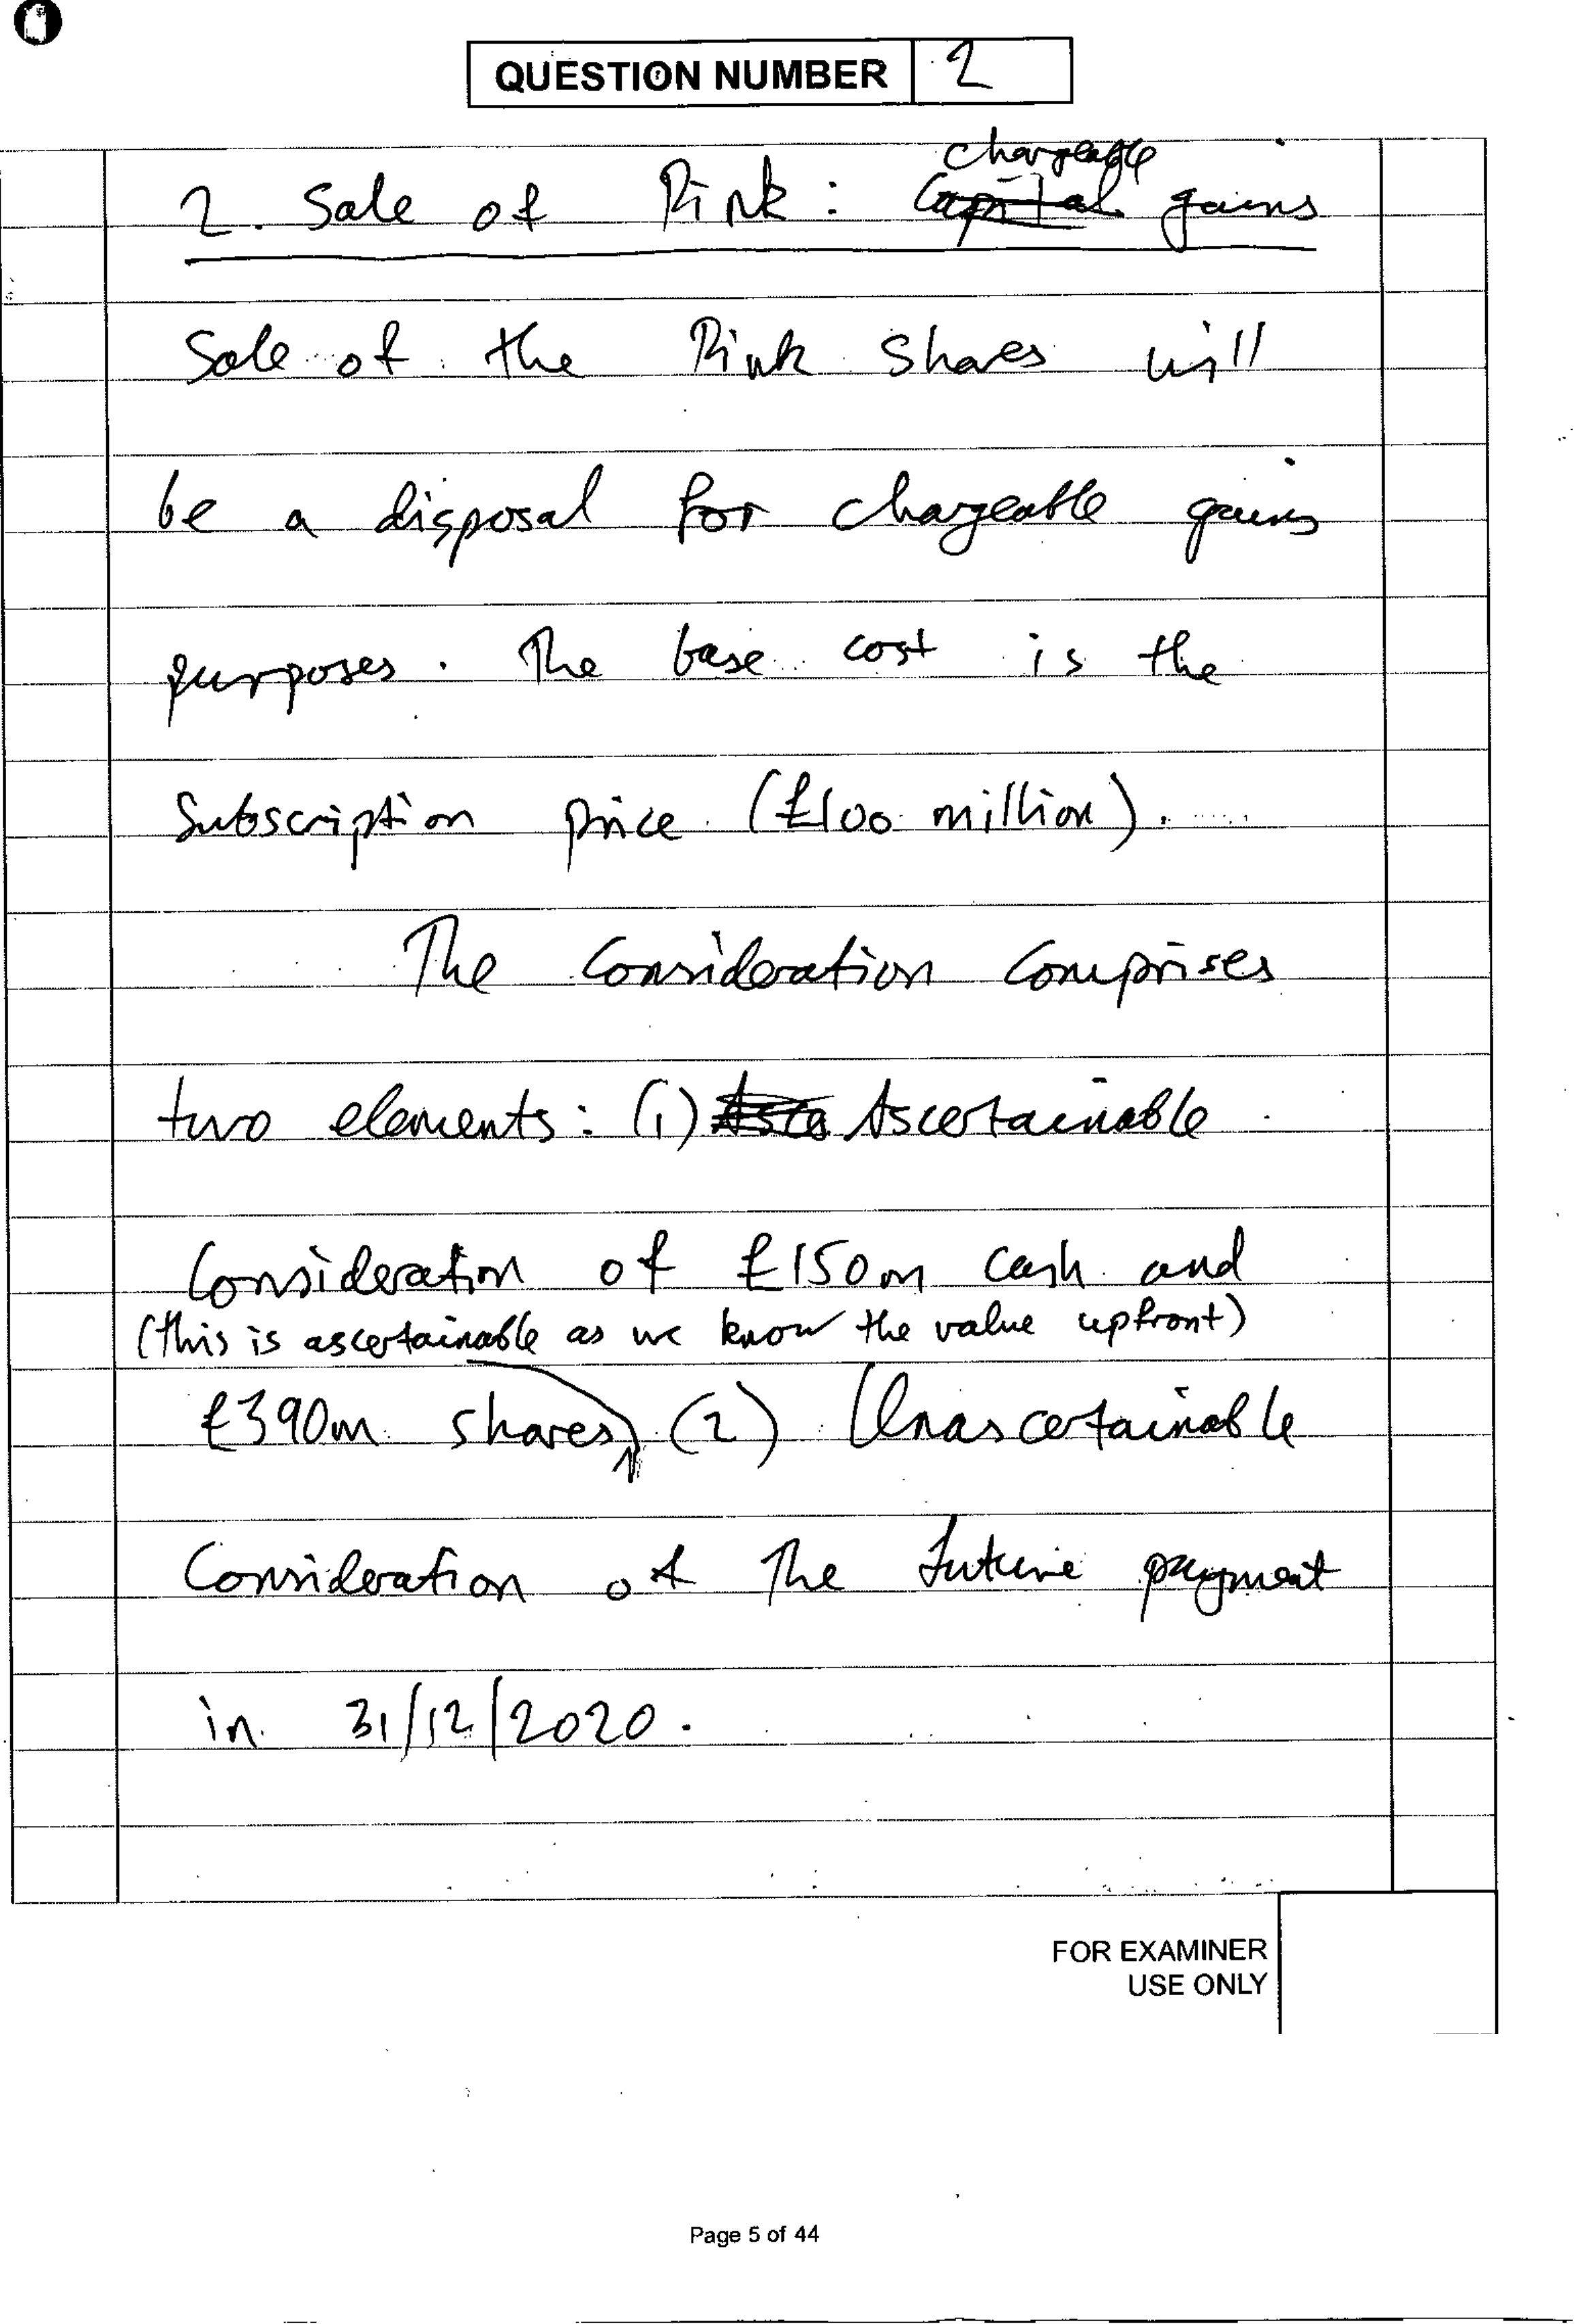 QUESTION NUMBER 2
chargeable
2. Sale of Pink: Capital gains
Sale of the Pink shares will
be a disposal for chargeable gains
purposes. The base cost is the
Subscription price (£100 million).
The Consideration Comprises
two elements: (1) Asce Ascertainable
Consideration of £150m cash and
(this is ascertainable as we know the value upfront)
£390m shares, (2) Unascertainable
Consideration of the future payment
in 31/12/2020.
FOR EXAMINER
USE ONLY
Page 5 of 44